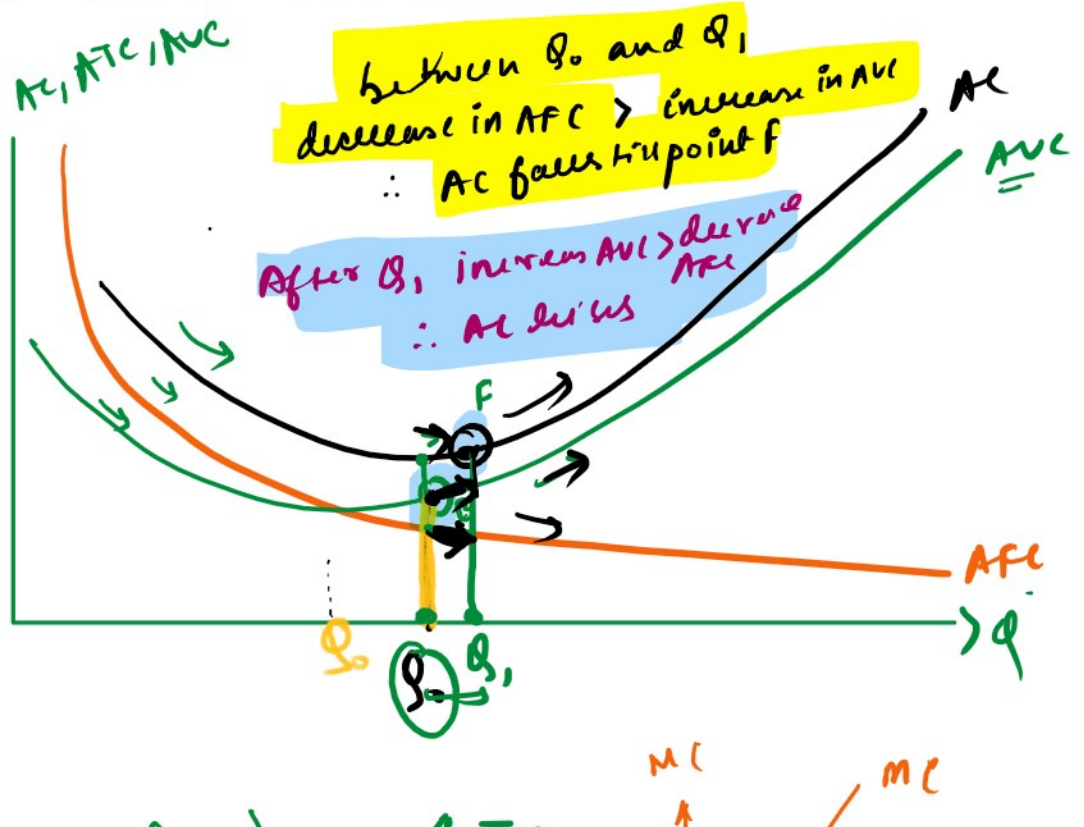 AC, ATC, AUC
between Q₀ and Q₁
decrease in AFC > increase in AVC
∴ AC falls till point F
After Q₁ increas AVC > decrease
AFC
∴ AC rises
AC
AVC
F
AFC
Q
Q₀
Q₀
Q₁
MC
MC